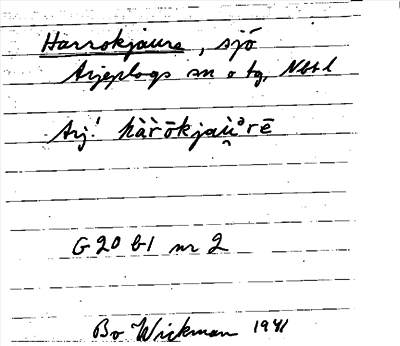 Harrokjaure, sjö
Arjeplogs sn o tg, Nbtl
Arj! hàr̀ōkjau̯ᵊrē
G 20 b1 nr 2
Bo Wickman 1941